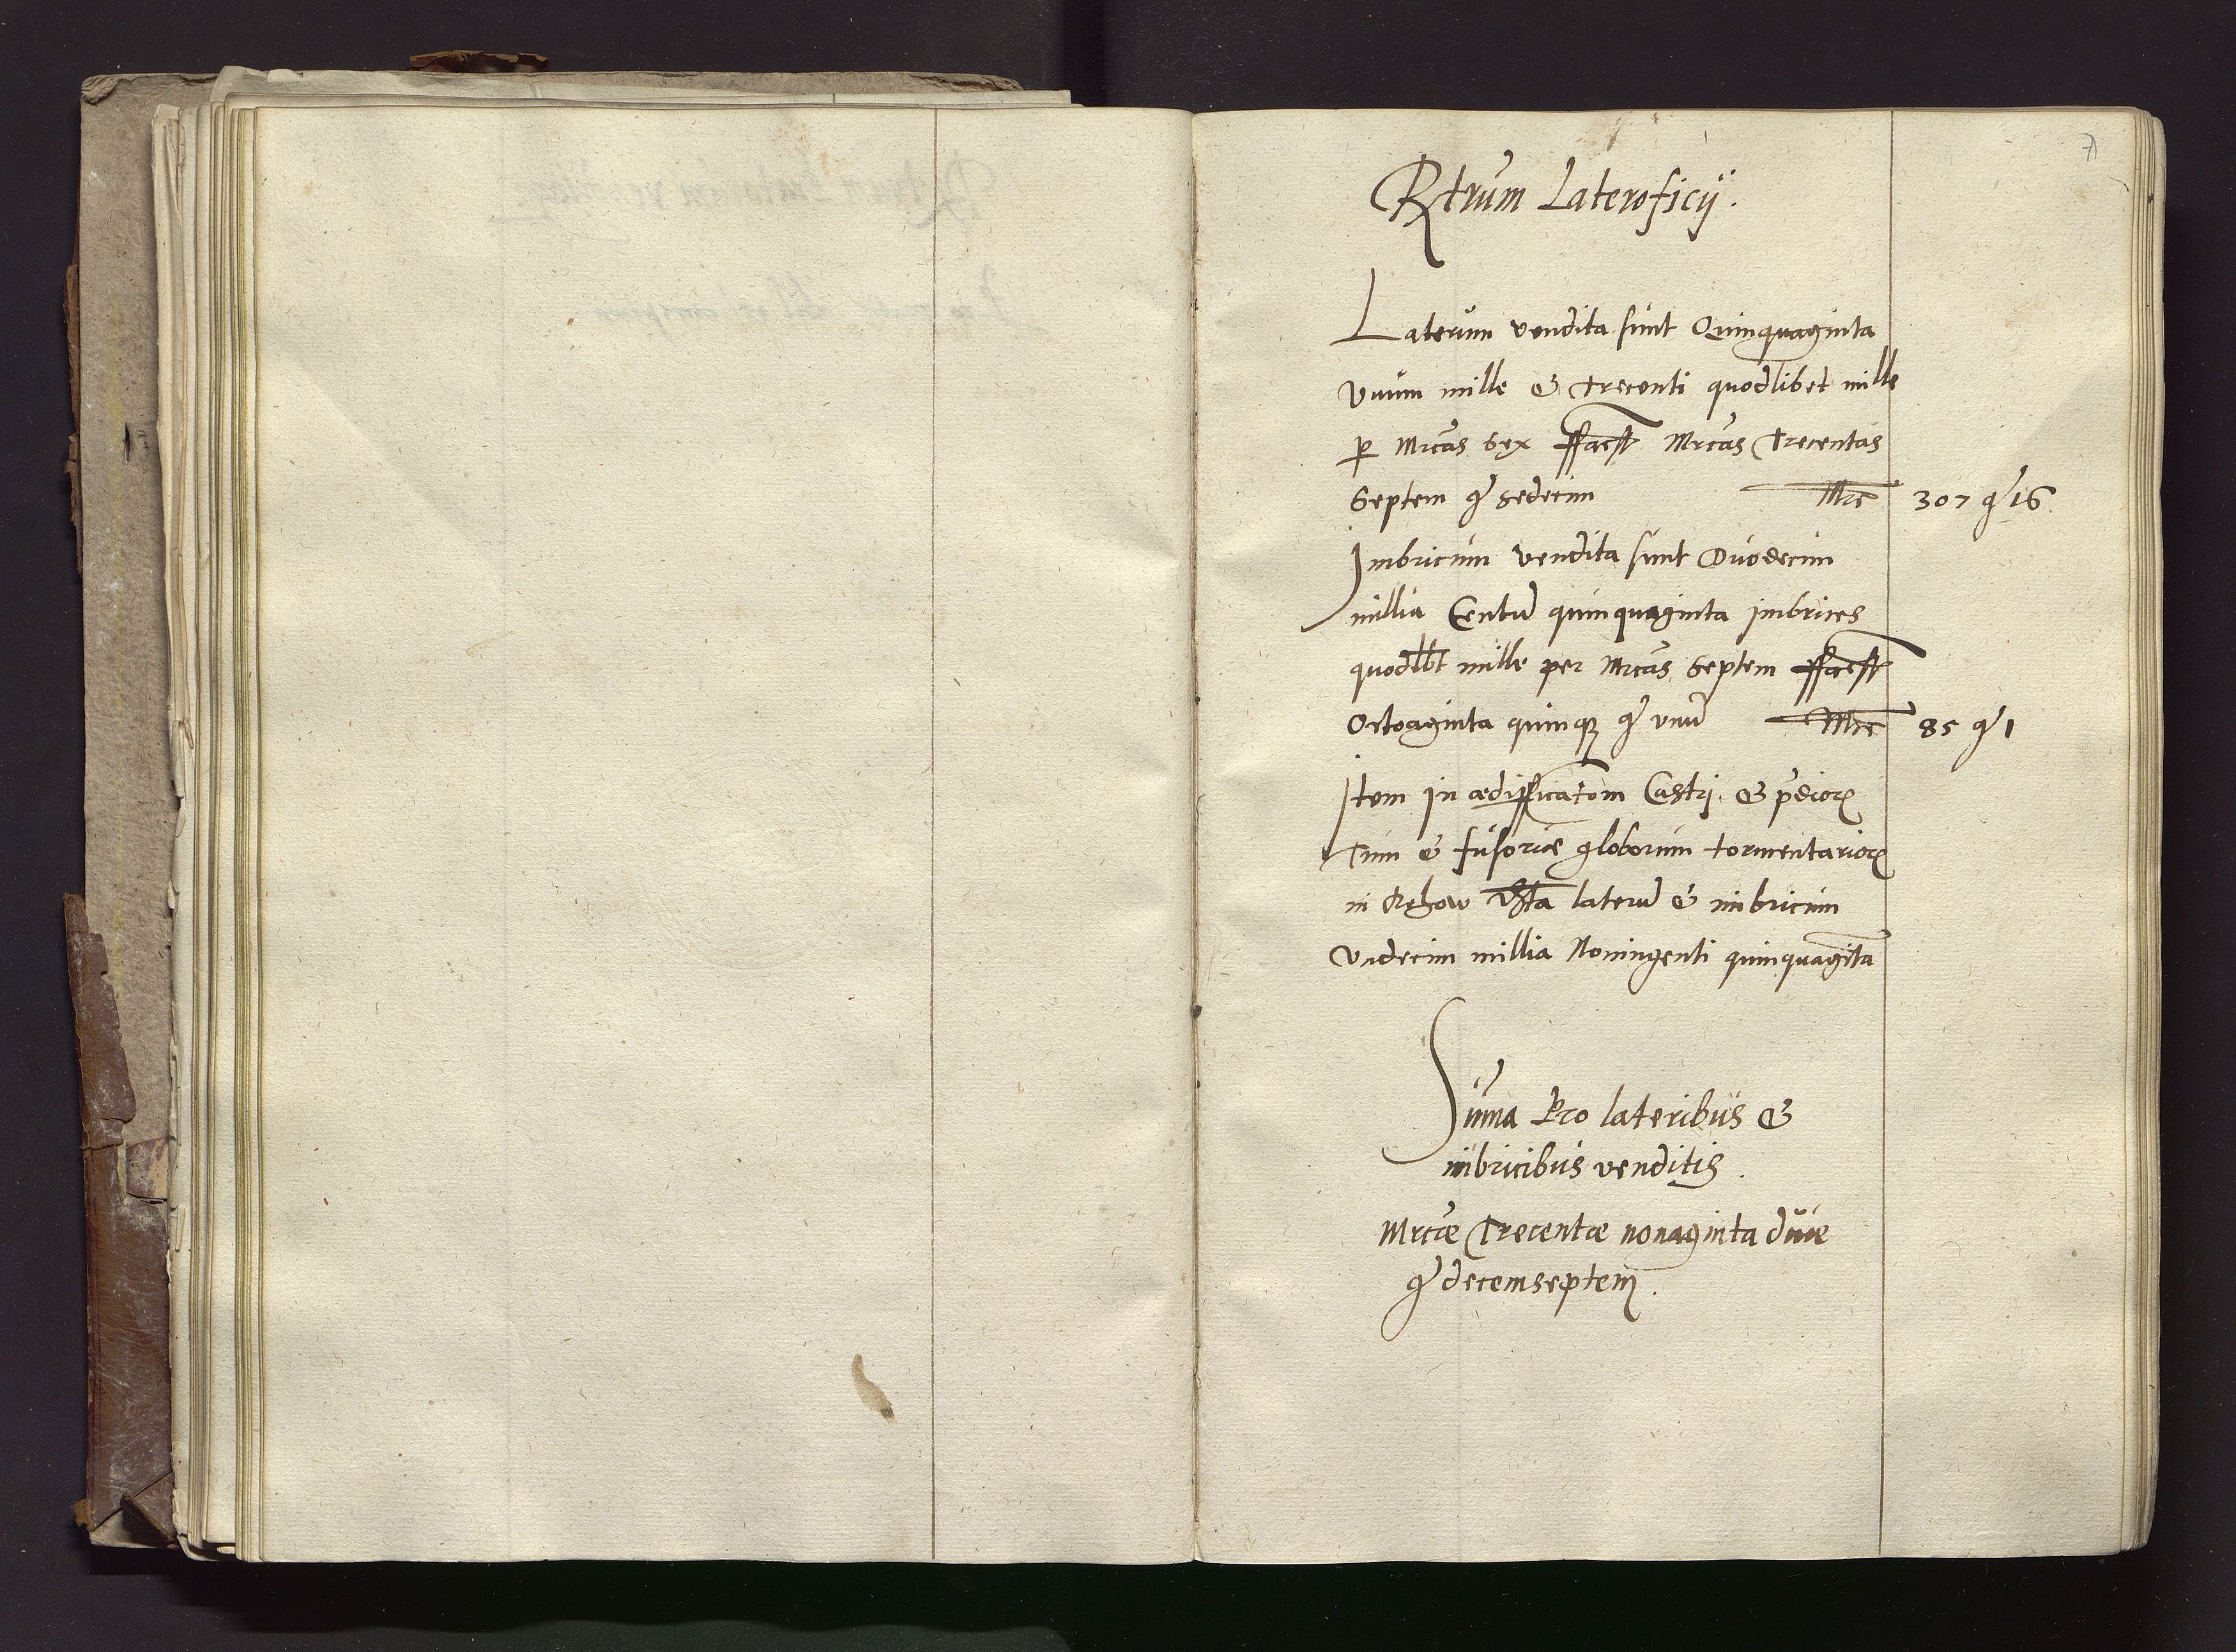 71
Rtrum Lateroficij.
Laterum vendita sunt Quinquaginta
vnum mille & trecenti quodlibet mille
p Mrcas sex ffacit Mrcas Trecentas
Septem gr sedecim Mrc 307 gr 16
Imbricum vendita sunt Duodecim
millia Centu quinquaginta imbrices
quodlbt mille per Mrcas Septem ffacit
Octoaginta quinq gr vnu Mrc 85 gr 1
Item in ædifficatom Castri & pdior
Tum & fusoriæ globorum tormentarior
in lateru & imbricum
Vndecim millia Noningenti quinquaginta
Suma Pro lateribus &
imbricibus venditis.
Mrcæ Trecentæ nonaginta duæ
gr decemseptem.